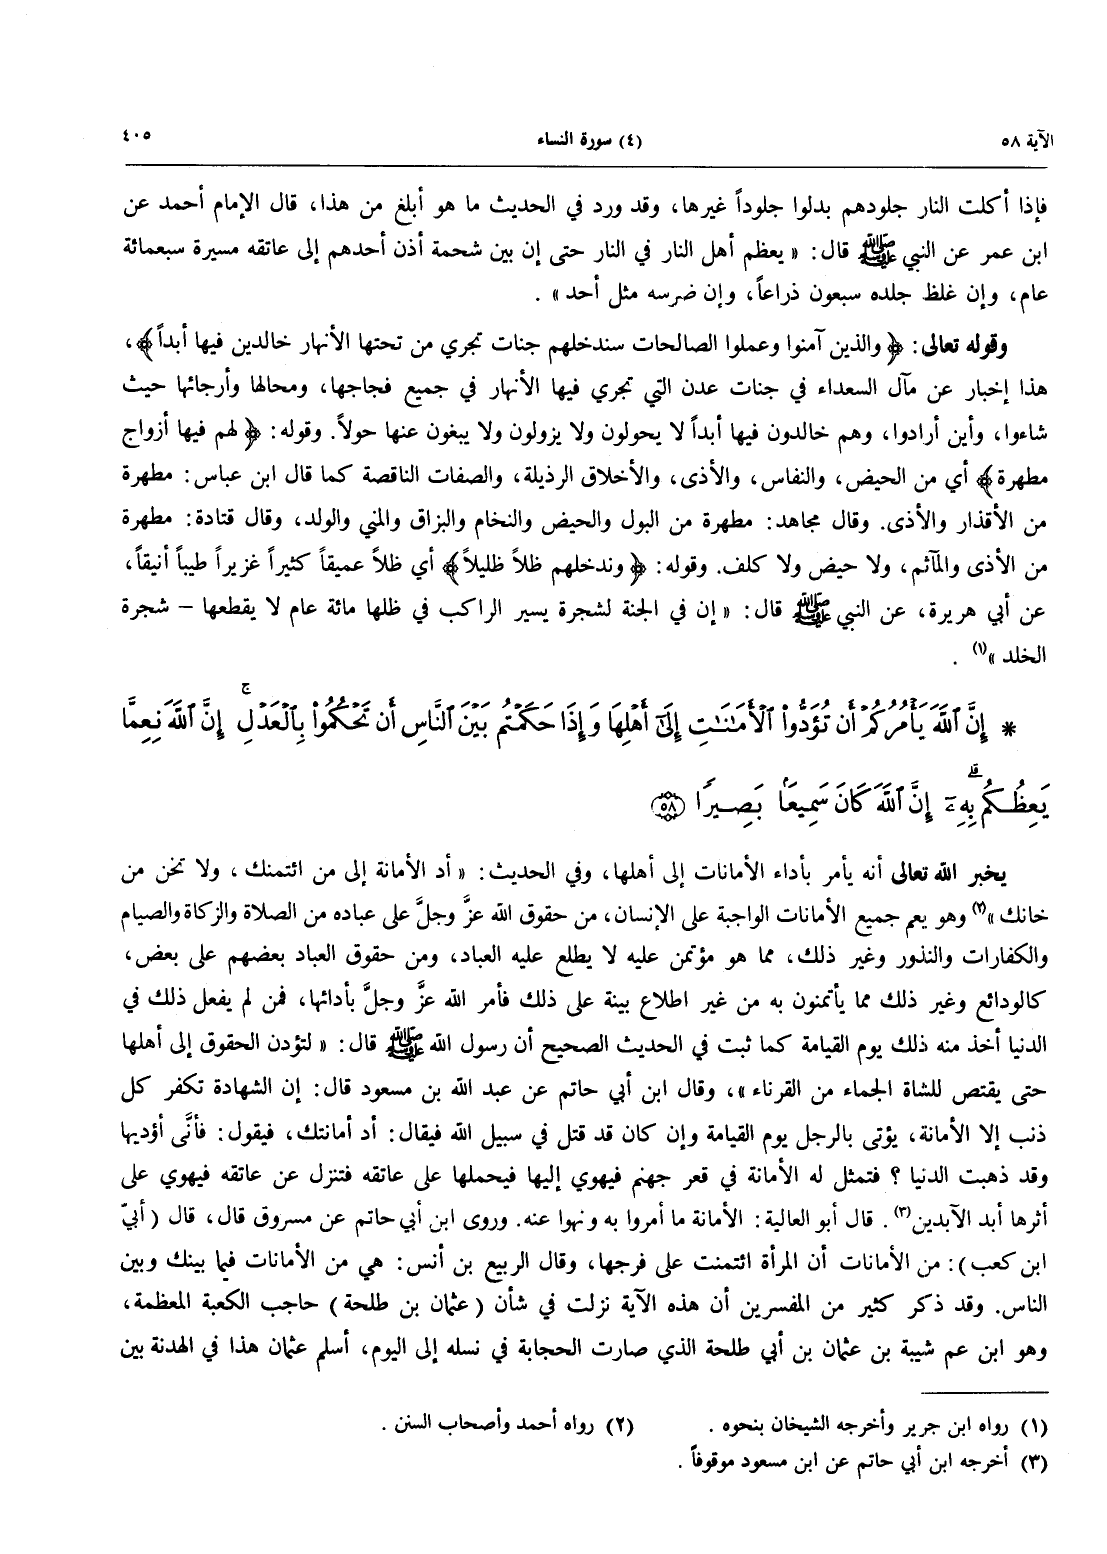 الآية ٥٨ (٤) سورة النساء ٤٠٥
فإذا أكلت النار جلودهم بدلوا جلوداً غيرها، وقد ورد في الحديث ما هو أبلغ من هذا، قال الإمام أحمد عن
ابن عمر عن النبي ﷺ قال: « يعظم أهل النار في النار حتى إن بين شحمة أذن أحدهم إلى عاتقه مسيرة سبعمائة
عام، وإن غلظ جلده سبعون ذراعاً، وإن ضرسه مثل أحد» .
وقوله تعالى: ﴿ والذين آمنوا وعملوا الصالحات سندخلهم جنات تجري من تحتها الأنهار خالدين فيها أبداً﴾،
هذا إخبار عن مآل السعداء في جنات عدن التي تجري فيها الأنهار في جميع فجاجها، ومحالها وأرجائها حيث
شاءوا، وأين أرادوا، وهم خالدون فيها أبداً لا يحولون ولا يزولون ولا يبغون عنها حولاً. وقوله: ﴿ لهم فيها أزواج
مطهرة﴾ أي من الحيض، والنفاس، والأذى، والأخلاق الرذيلة، والصفات الناقصة كما قال ابن عباس: مطهرة
من الأقذار والأذى. وقال مجاهد: مطهرة من البول والحيض والنخام والبزاق والمني والولد، وقال قتادة: مطهرة
من الأذى والمآثم، ولا حيض ولا كلف. وقوله: ﴿ وندخلهم ظلاً ظليلاً﴾ أي ظلاً عميقاً كثيراً غزيراً طيباً أنيقاً،
عن أبي هريرة، عن النبي ﷺ قال: « إن في الجنة لشجرة يسير الراكب في ظلها مائة عام لا يقطعها – شجرة
الخلد »(١) .
* إِنَّ ٱللَّهَ يَأْمُرُكُمْ أَن تُؤَدُّوا۟ ٱلْأَمَـٰنَـٰتِ إِلَىٰٓ أَهْلِهَا وَإِذَا حَكَمْتُم بَيْنَ ٱلنَّاسِ أَن تَحْكُمُوا۟ بِٱلْعَدْلِ ۚ إِنَّ ٱللَّهَ نِعِمَّا
يَعِظُكُم بِهِۦٓ ۗ إِنَّ ٱللَّهَ كَانَ سَمِيعًۢا بَصِيرًا ﴿٥٨﴾
يخبر الله تعالى أنه يأمر بأداء الأمانات إلى أهلها، وفي الحديث: « أد الأمانة إلى من ائتمنك ، ولا تخن من
خانك »(٢) وهو يعم جميع الأمانات الواجبة على الإنسان، من حقوق الله عزَّ وجلَّ على عباده من الصلاة والزكاة والصيام
والكفارات والنذور وغير ذلك، مما هو مؤتمن عليه لا يطلع عليه العباد، ومن حقوق العباد بعضهم على بعض،
كالودائع وغير ذلك مما يأتمنون به من غير اطلاع بينة على ذلك فأمر الله عزَّ وجلَّ بأدائها، فمن لم يفعل ذلك في
الدنيا أخذ منه ذلك يوم القيامة كما ثبت في الحديث الصحيح أن رسول الله ﷺ قال: « لتؤدن الحقوق إلى أهلها
حتى يقتص للشاة الجماء من القرناء »، وقال ابن أبي حاتم عن عبد الله بن مسعود قال: إن الشهادة تكفر كل
ذنب إلا الأمانة، يؤتى بالرجل يوم القيامة وإن كان قد قتل في سبيل الله فيقال: أد أمانتك، فيقول: فأنَّى أؤديها
وقد ذهبت الدنيا ؟ فتمثل له الأمانة في قعر جهنم فيهوي إليها فيحملها على عاتقه فتنزل عن عاتقه فيهوي على
أثرها أبد الآبدين(٣) . قال أبو العالية: الأمانة ما أمروا به ونهوا عنه. وروى ابن أبي حاتم عن مسروق قال، قال (أبيّ
ابن كعب): من الأمانات أن المرأة ائتمنت على فرجها، وقال الربيع بن أنس: هي من الأمانات فيما بينك وبين
الناس. وقد ذكر كثير من المفسرين أن هذه الآية نزلت في شأن (عثمان بن طلحة) حاجب الكعبة المعظمة،
وهو ابن عم شيبة بن عثمان بن أبي طلحة الذي صارت الحجابة في نسله إلى اليوم، أسلم عثمان هذا في الهدنة بين
(١) رواه ابن جرير وأخرجه الشيخان بنحوه . (٢) رواه أحمد وأصحاب السنن .
(٣) أخرجه ابن أبي حاتم عن ابن مسعود موقوفاً .